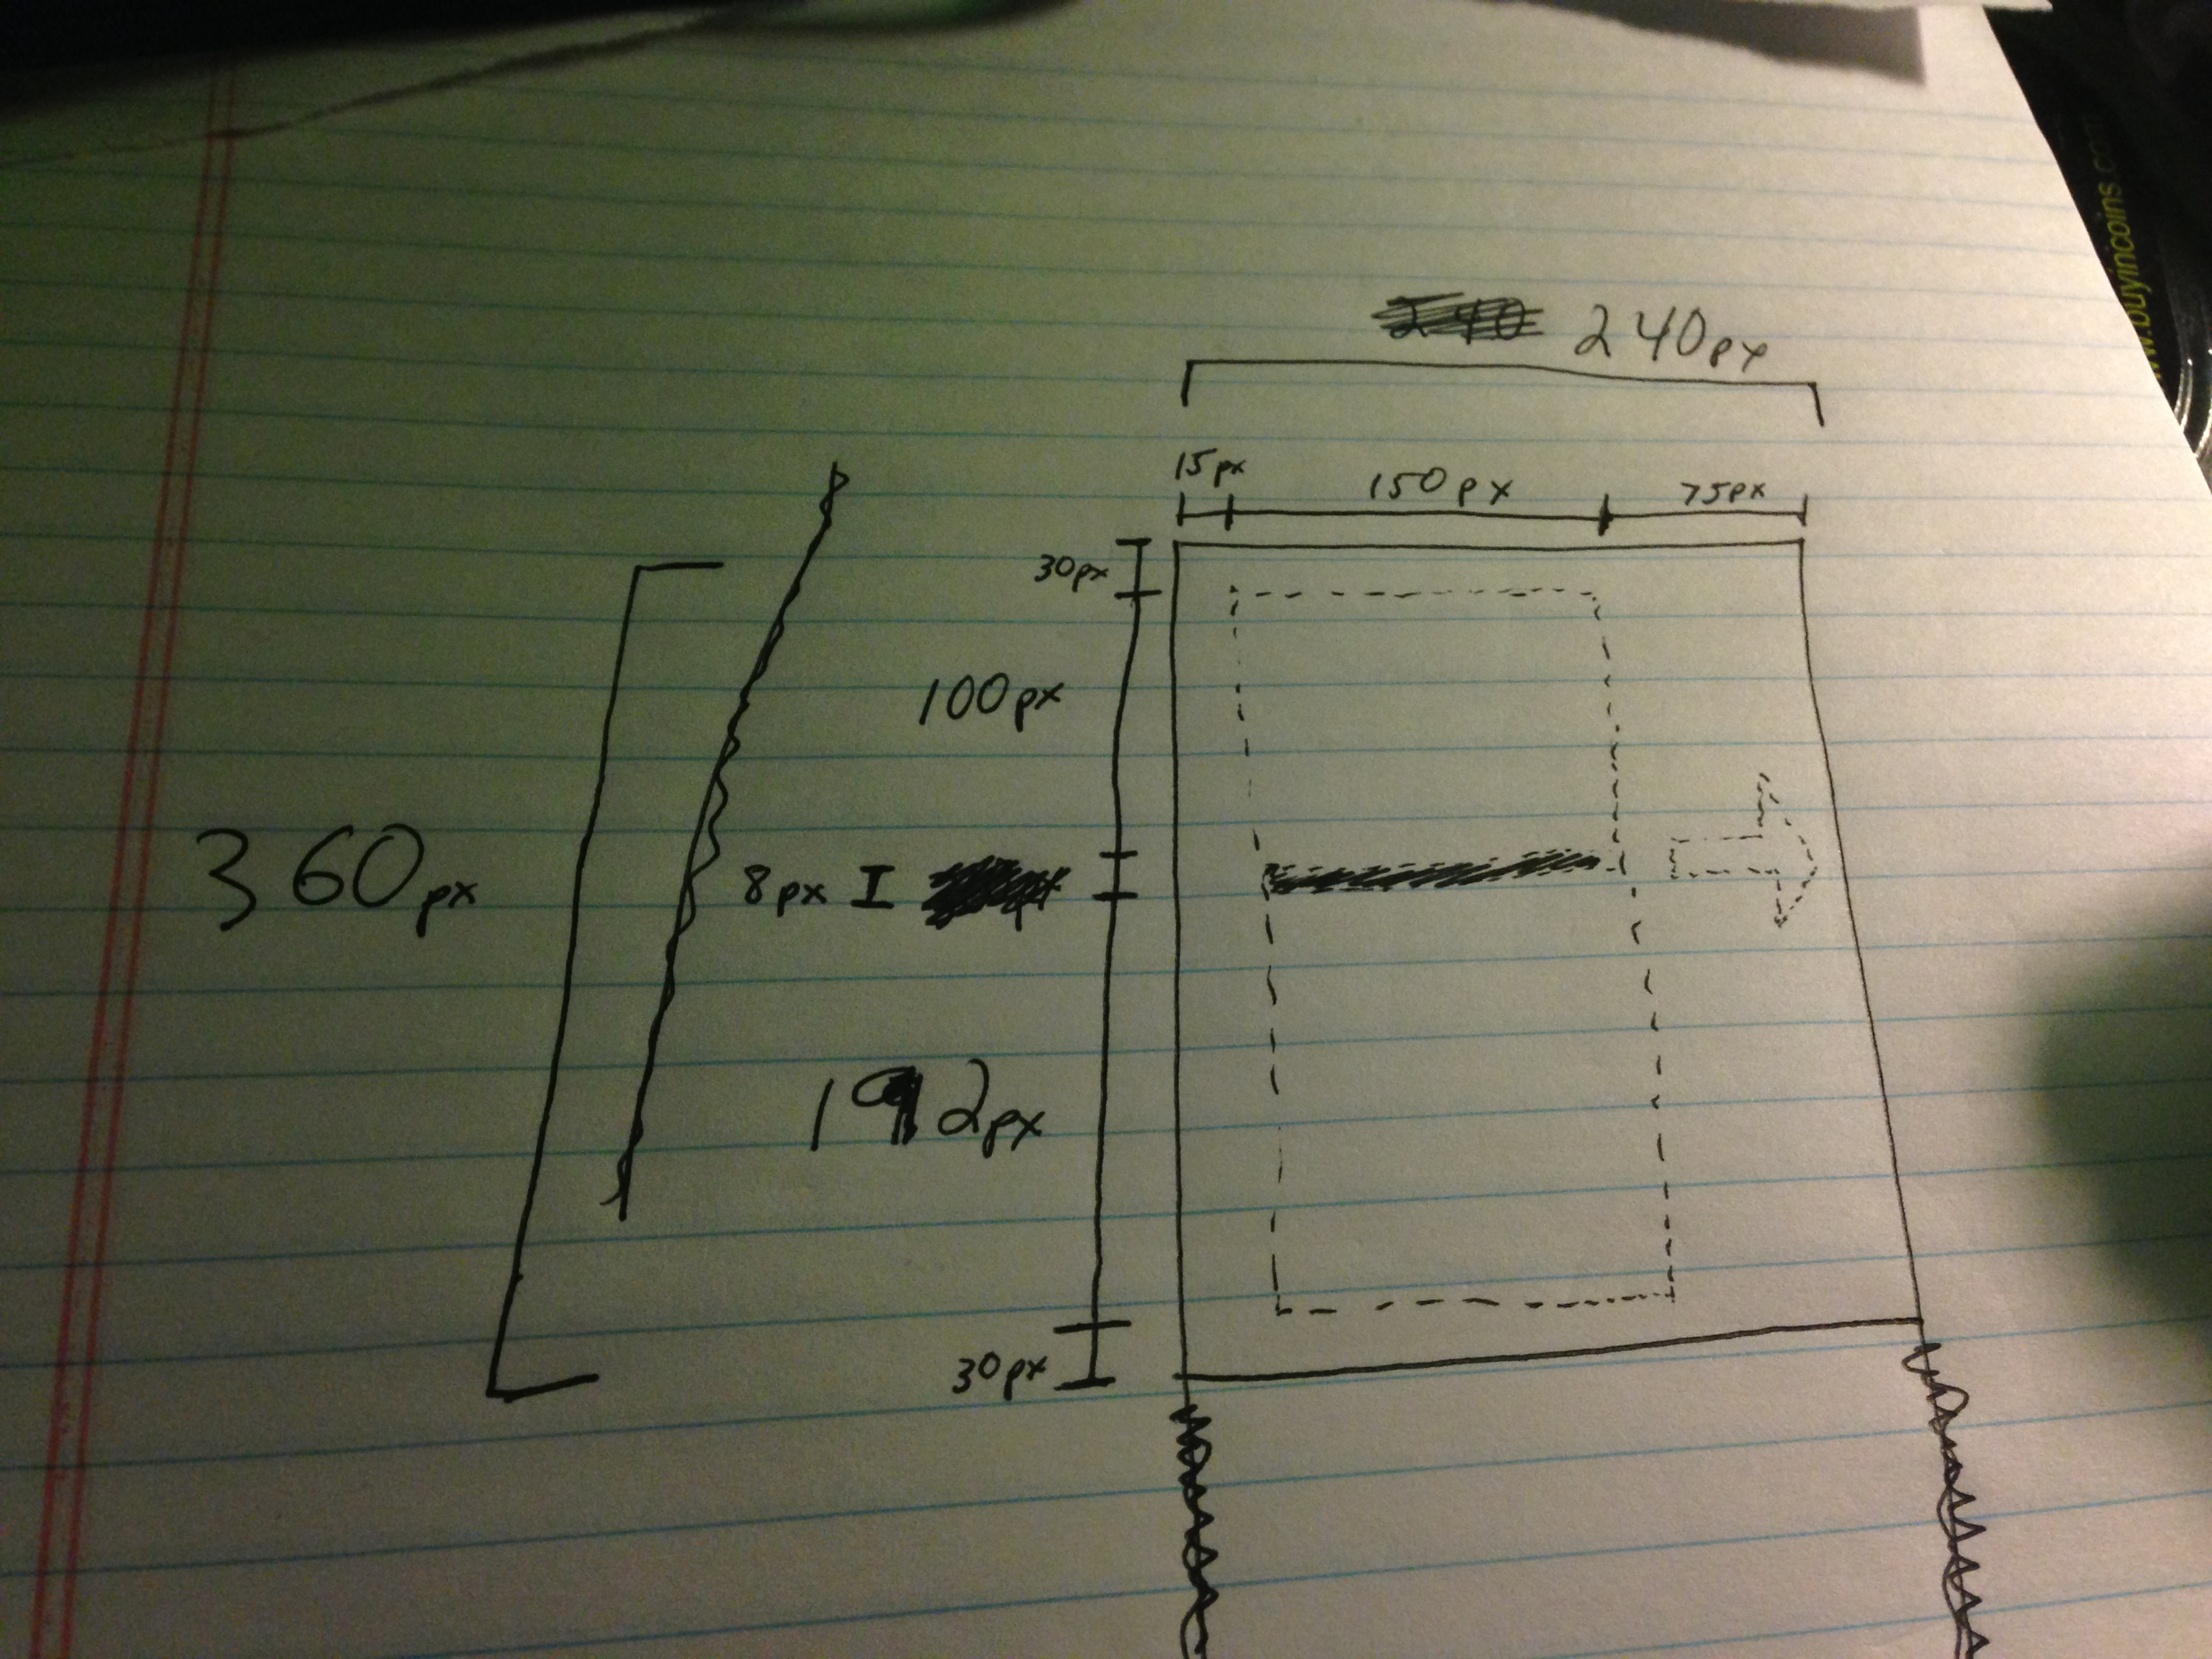 240 240px
15px 150px 75px
30px
100px
360px
8px
192px
30px
w.buyincoins.com